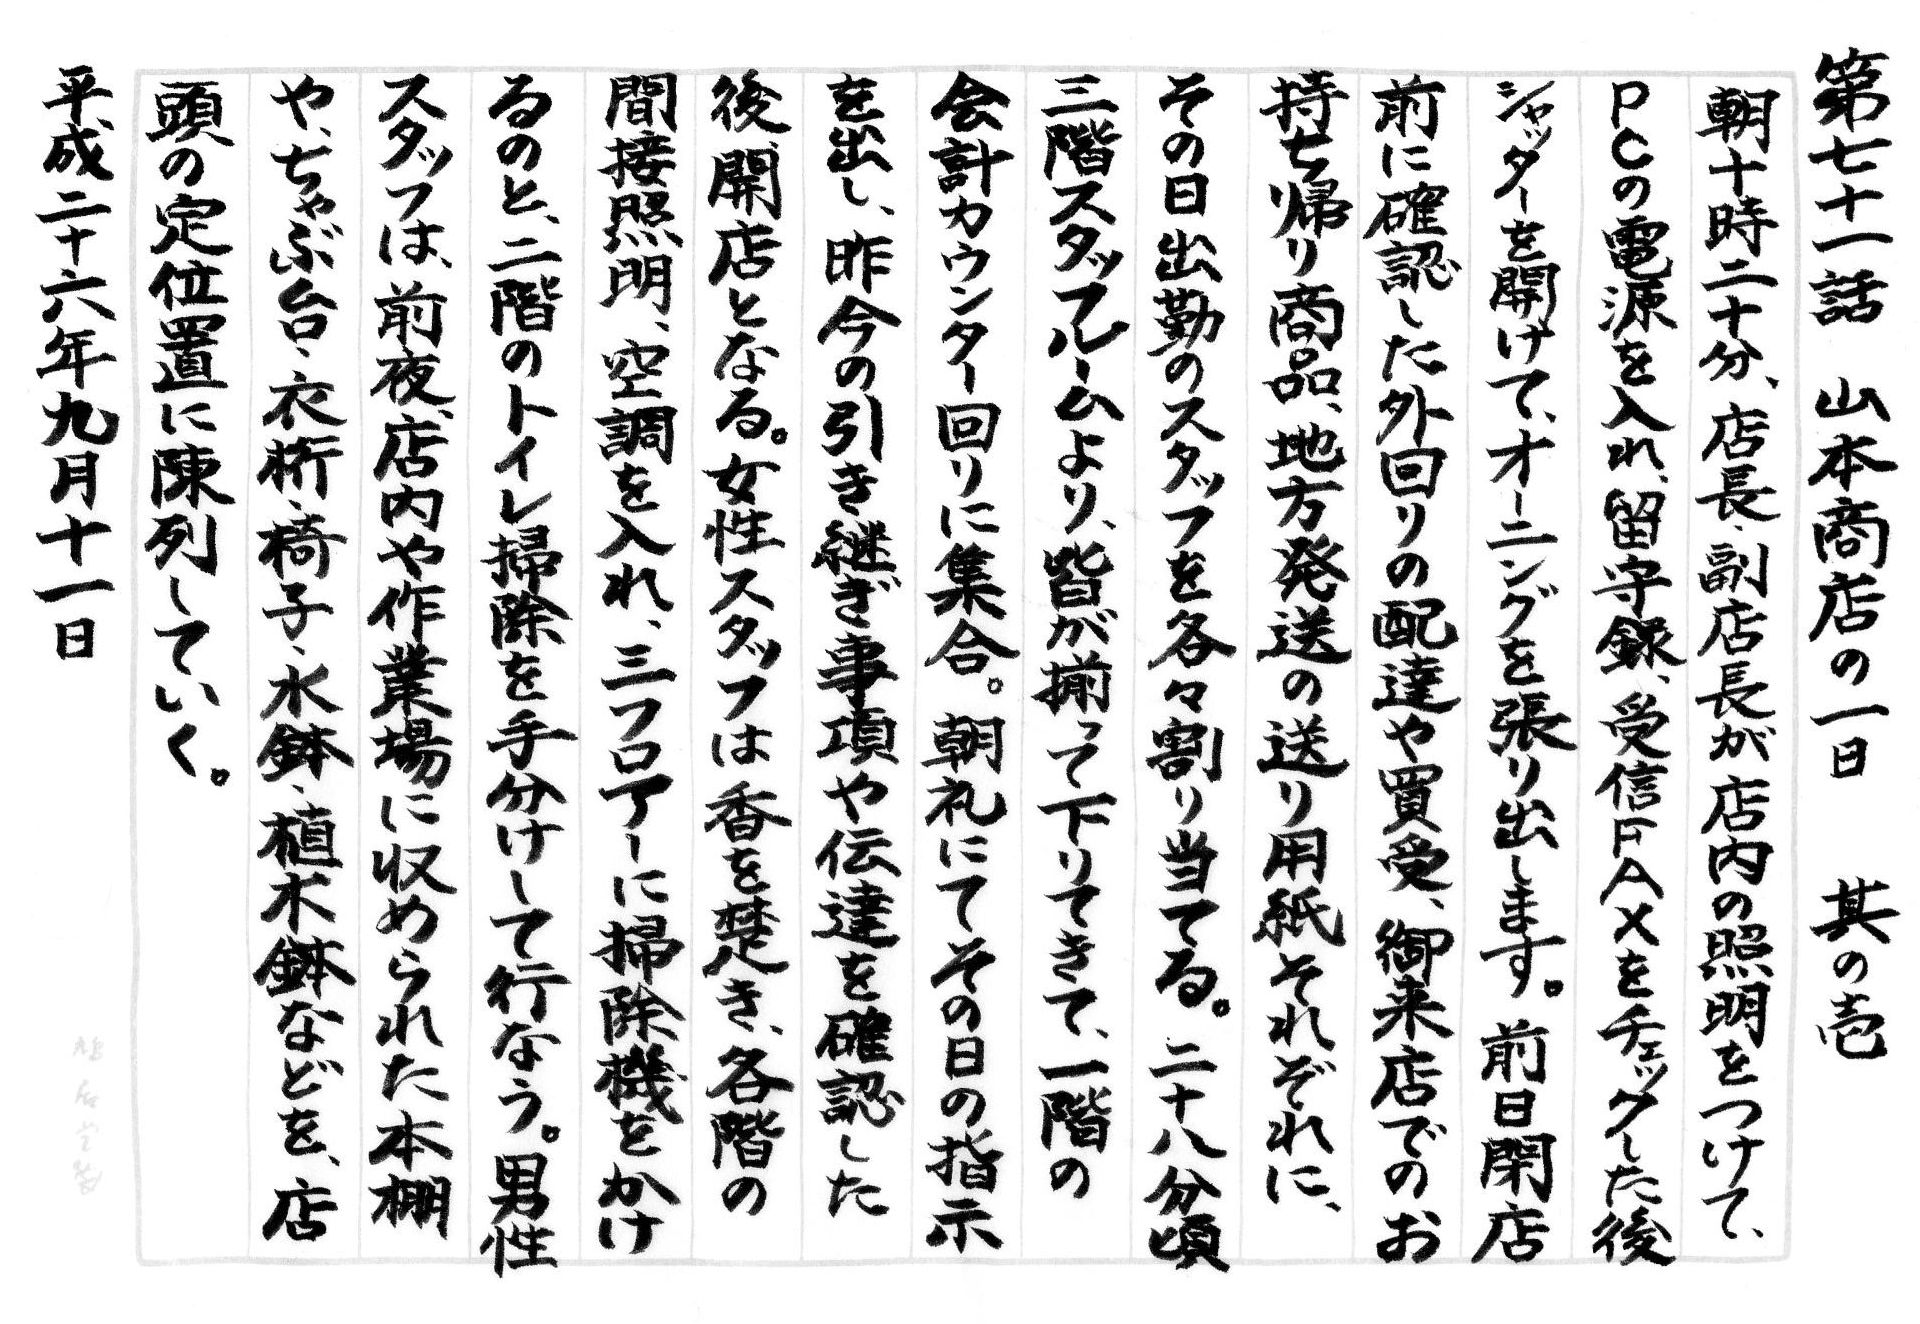 第七十一話　山本商店の一日　其の壱
朝十時二十分、店長・副店長が店内の照明をつけて、
PCの電源を入れ、留守録、受信FAXをチェックした後
シャッターを開けて、オーニングを張り出します。前日閉店
前に確認した外回りの配達や買受、御来店でのお
持ち帰り商品、地方発送の送り用紙それぞれに、
その日出勤のスタッフを各々割り当てる。二十八分頃
三階スタッフルームより、皆が揃って下りてきて、一階の
会計カウンター回りに集合。朝礼にてその日の指示
を出し、昨今の引き継ぎ事項や伝達を確認した
後、開店となる。女性スタッフは香を焚き、各階の
間接照明、空調を入れ、三フロアーに掃除機をかけ
るのと、二階のトイレ掃除を手分けして行なう。男性
スタッフは、前夜、店内や作業場に収められた本棚
や、ちゃぶ台・衣桁・椅子・水鉢・植木鉢などを、店
頭の定位置に陳列していく。
平成二十六年九月十一日